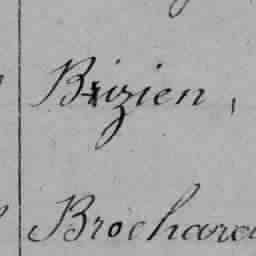 Bizien,
Brochard